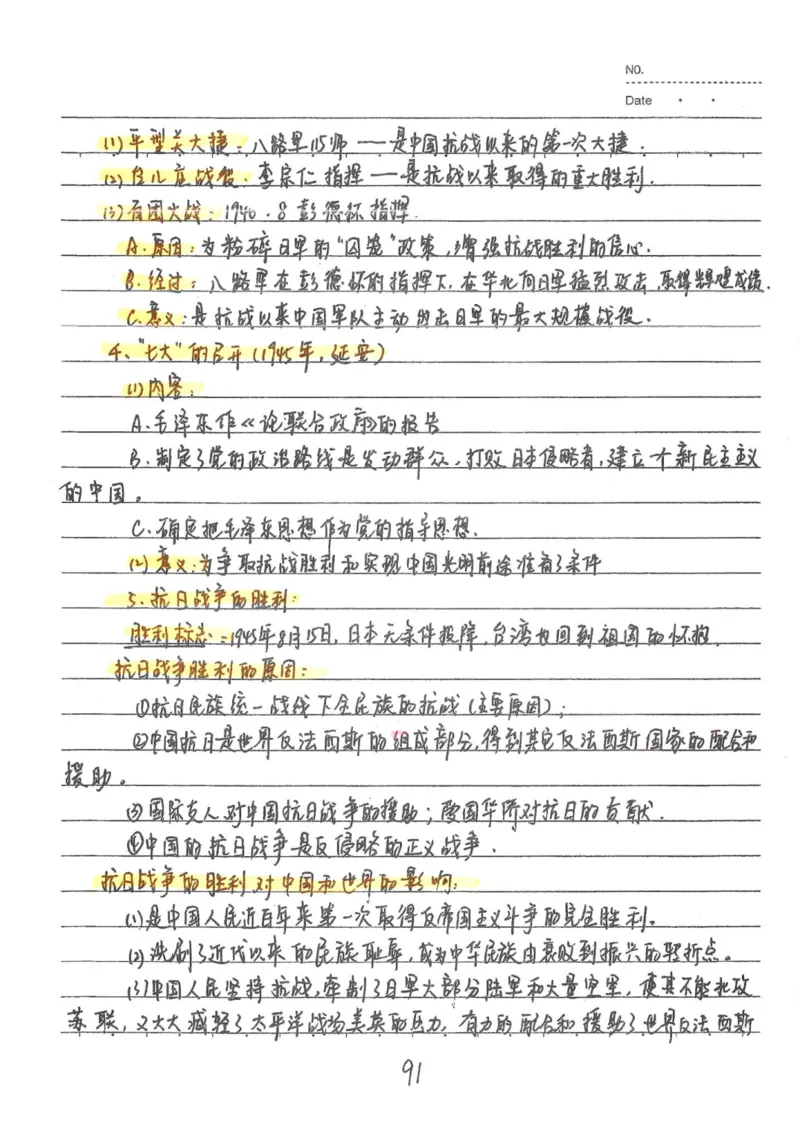 NO.
Date
(1)平型关大捷：八路军115师——是中国抗战以来的第一次大捷.
(2)台儿庄战役：李宗仁指挥——是抗战以来取得的重大胜利.
(3)百团大战：1940.8彭德怀指挥.
A.原因：为粉碎日军的“囚笼”政策，增强抗战胜利的信心.
B.经过：八路军在彭德怀的指挥下，在华北向日军猛烈攻击，取得辉煌成绩.
C.意义：是抗战以来中国军队主动出击日军的最大规模战役.
4、“七大”的召开(1945年，延安)
(1)内容：
A.毛泽东作《论联合政府》的报告
B.制定了党的政治路线是发动群众，打败日本侵略者，建立一个新民主主义
的中国。
C.确定把毛泽东思想作为党的指导思想.
(2)意义：为争取抗战胜利和实现中国光明前途准备了条件
5.抗日战争的胜利：
胜利标志：1945年8月15日，日本无条件投降，台湾也回到祖国的怀抱.
抗日战争胜利的原因：
①抗日民族统一战线下全民族的抗战(主要原因)；
②中国抗日是世界反法西斯的组成部分，得到其它反法西斯国家的配合和
援助。
③国际友人对中国抗日战争的援助；爱国华侨对抗日的贡献.
④中国的抗日战争是反侵略的正义战争.
抗日战争的胜利对中国和世界的影响：
(1)是中国人民近百年来第一次取得反帝国主义斗争的完全胜利。
(2)洗刷了近代以来的民族耻辱，成为中华民族由衰败到振兴的转折点。
(3)中国人民坚持抗战，牵制了日军大部分陆军和大量空军，使其不能北攻
苏联，又大大减轻了太平洋战场美英的压力，有力的配合和援助了世界反法西斯
91